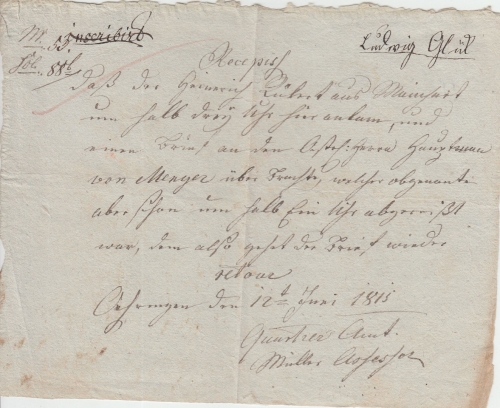 N. 55. inscribirt
Fol. 88b
Ludwig Glük
Recepiss
Daß der Heinrich Kükert aus Mainhart
um halb drey Uhr hier ankam, und
einen Brief an den Herrn Hauptmann
von Menger über brachte, welcher obgenante
aber schon um halb Ein Uhr abgereißt
war, dem also gehet der Brief wieder
retour
Oehringen den 12t Juni 1815
Quartier Amt.
Müller Assessor